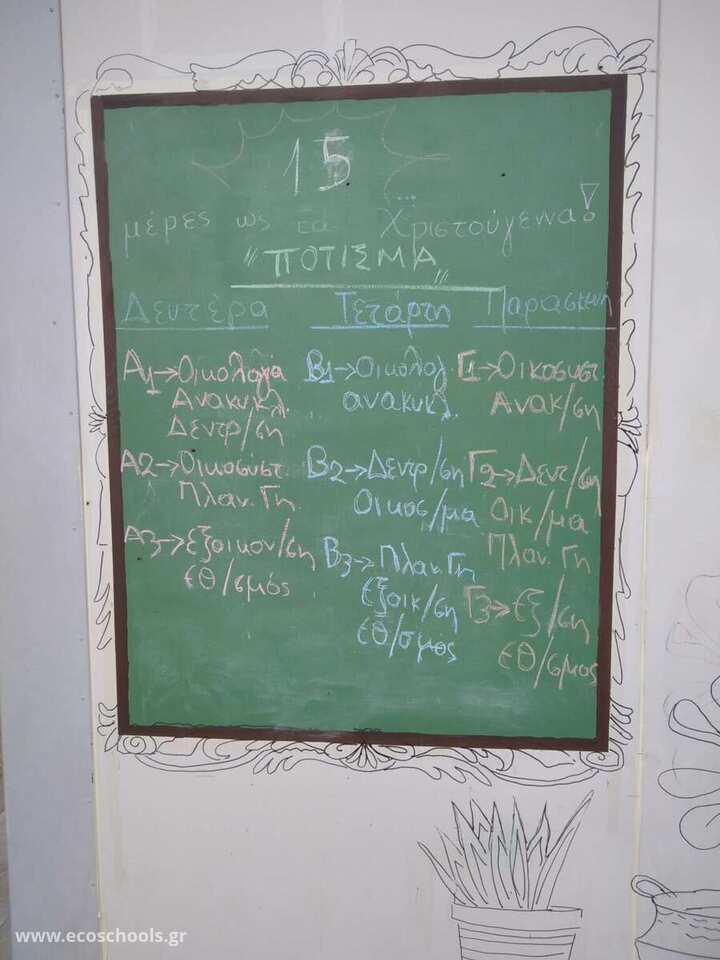 15
μέρες ως τα Χριστούγεννα!
"ΠΟΤΙΣΜΑ"
Δευτέρα Τετάρτη Παρασκευή
Α1→Οικολογία
Ανακυκλ.
Δεντρ/ση
Α2→Οικοσύστ.
Πλαν. Γη
Α3→εξοικον/ση
εθ/σμός
Β1→Οικολογ.
ανακυκλ.
Β2→Δεντρ/ση
Οικοσ/μα
Β3→Πλαν. Γη
εξοικ/ση
εθ/σμός
Γ1→Οικοσυστ.
Ανακ/ση
Γ2→Δεντ/ση
Οικ/μα
Πλαν. Γη
Γ3→εξ/ση
εθ/σμος
www.ecoschools.gr